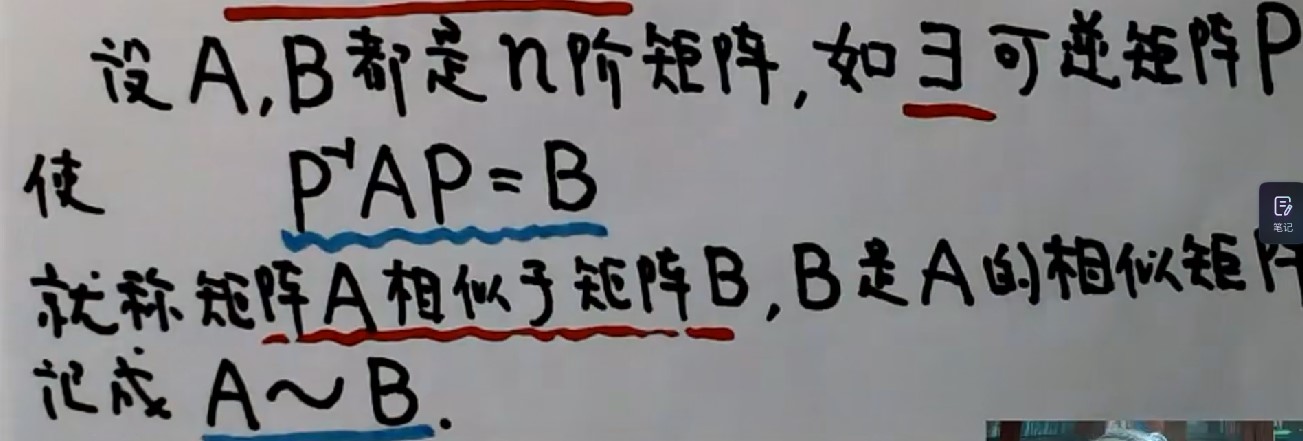 设A,B都是n阶矩阵,如∃可逆矩阵P
使 P⁻¹AP=B
笔记
就称矩阵A相似于矩阵B,B是A的相似矩阵
记成 A～B.